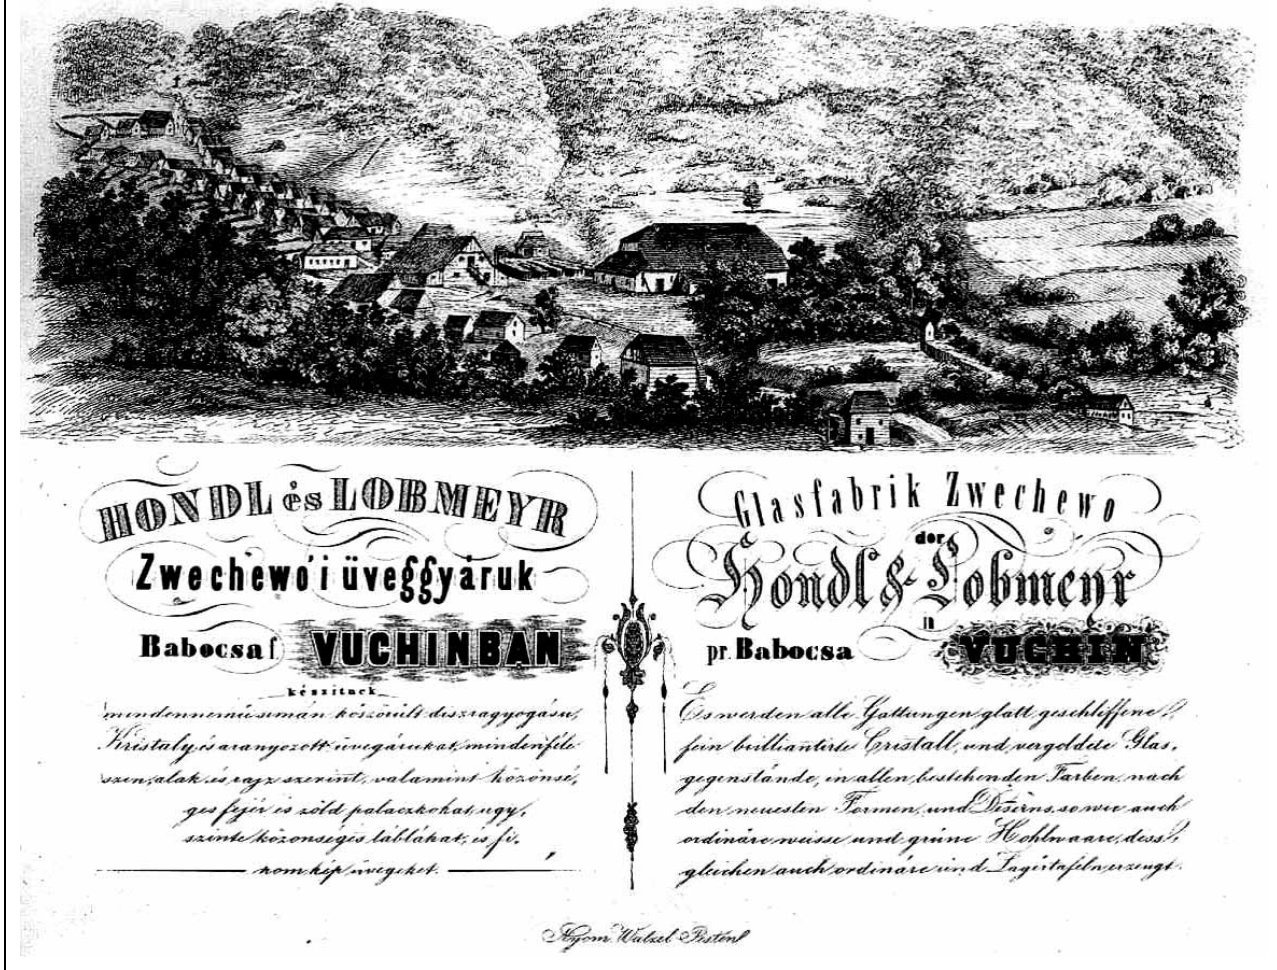 HONDL és LOBMEYR
Zwechewo'i üveggyáruk
Babocsa f. VUCHINBAN
készitnek
mindennemü simán köszörült diszragyogásu,
Kristaly és aranyozott üvegárukat, mindenféle
szin, alak és rajz szerint, valamint közönsé,
ges fejér és zöld palaczkokat, ugy,
szinte közönséges táblákat, és fi,
nom kép üvegeket.
Glasfabrik Zwechewo
der
Hondl & Lobmeyr
in
pr. Babocsa VUCHIN
Es werden alle Gattungen glatt geschliffene,
fein brilliantirte Cristall, und vergoldete Glas,
gegenstände, in allen bestehenden Farben, nach
den neuesten Formen und Diseins, so wie auch
ordinäre weisse und grüne Hohlwaare, dess,
gleichen auch ordinäre und Lagertafeln erzeugt.
Nyom. Walzel Pesten